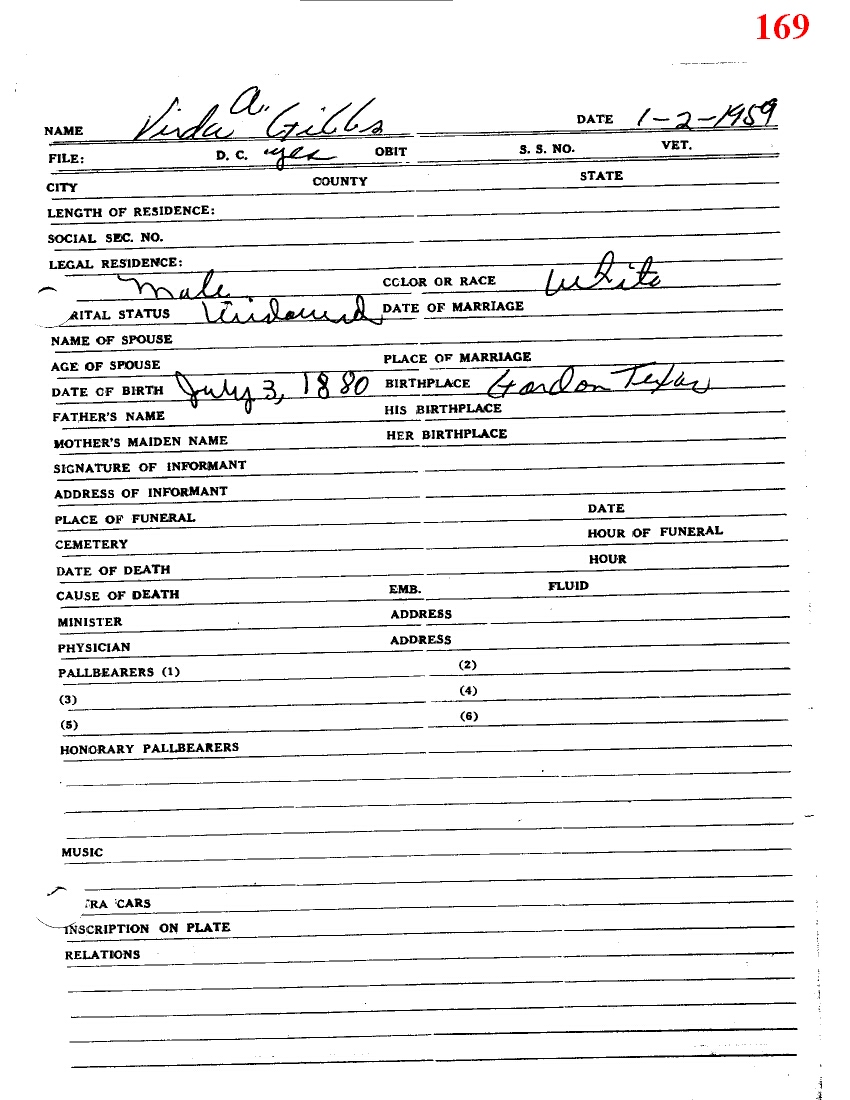 169
A.
NAME Virda Gibbs DATE 1-2-1959
FILE: D. C. yes OBIT S. S. NO. VET.
CITY COUNTY STATE
LENGTH OF RESIDENCE:
SOCIAL SEC. NO.
LEGAL RESIDENCE:
Male COLOR OR RACE White
RITAL STATUS Widowed DATE OF MARRIAGE
NAME OF SPOUSE
AGE OF SPOUSE PLACE OF MARRIAGE
DATE OF BIRTH July 3, 1880 BIRTHPLACE Gordon Texas
FATHER'S NAME HIS BIRTHPLACE
MOTHER'S MAIDEN NAME HER BIRTHPLACE
SIGNATURE OF INFORMANT
ADDRESS OF INFORMANT
PLACE OF FUNERAL DATE
CEMETERY HOUR OF FUNERAL
DATE OF DEATH HOUR
CAUSE OF DEATH EMB. FLUID
MINISTER ADDRESS
PHYSICIAN ADDRESS
PALLBEARERS (1) (2)
(3) (4)
(5) (6)
HONORARY PALLBEARERS
MUSIC
RA CARS
INSCRIPTION ON PLATE
RELATIONS